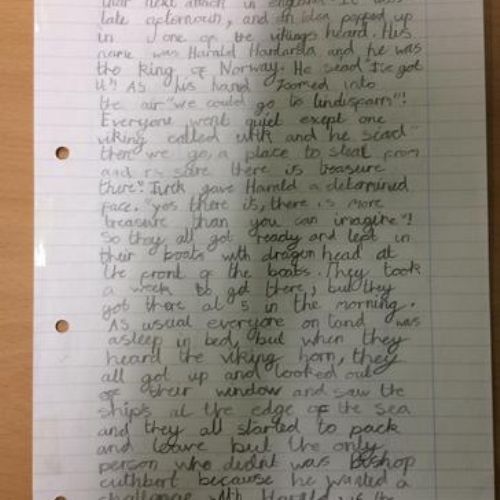 their next attack in england. It was
late afternoon, and an idea popped up
in one of the vikings heard. His
name was Harald Hardarda and he was
the king of Norway. He sead "I've got
it"! As his hand zoomed into
the air "we could go to lindisparn"!
Everyone went quiet exept one
viking called and he sead"
there we go, a place to steal from
and I'm sure there is treasure
there". gave Harald a determined
face. "yes there is, there is more
treasure than you can imagine"!
So they all got ready and lept in
their boats with dragon head at
the front of the boats. They took
a week to get there, but they
got there at 5 in the morning.
As usual everyone on land was
asleep in bed, but when they
heard the viking horn, they
all got up and looked out
of their window and saw the
ships at the edge of the sea
and they all started to pack
and leave but the only
person who didnt was Bishop
cuthbert because he wanted a
challenge with Harald is the